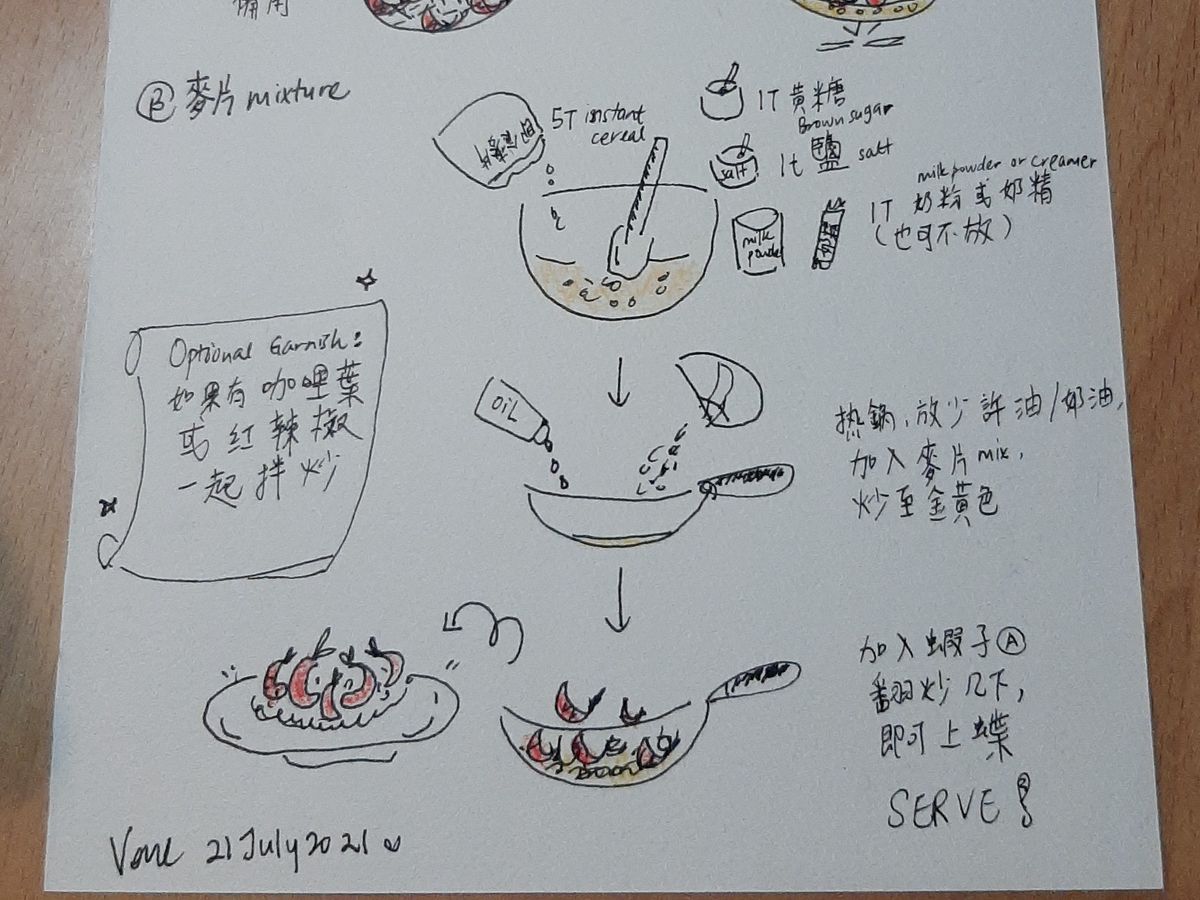 備用
Ⓑ 麥片 mixture
5T instant
cereal
1T 黃糖
Brown sugar
salt
1t 鹽 salt
milk powder or creamer
1T 奶粉或奶精
(也可不放)
milk
powder
奶精
Optional Garnish:
如果有咖哩葉
或红辣椒
一起拌炒
OIL
热鍋,放少許油/奶油,
加入麥片mix,
炒至金黃色
加入蝦子Ⓐ
翻炒几下,
即可上蝶
SERVE!
21 July 2021